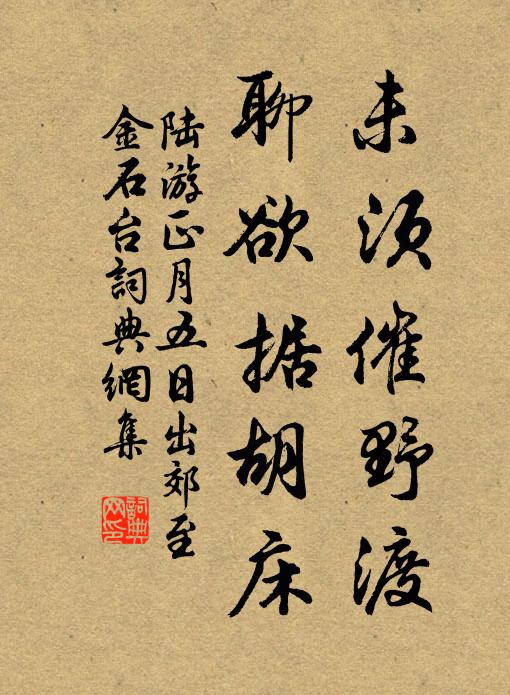 未須催野渡
聊欲据胡床
陆游正月五日出郊至
金石台詞典網集
詞典網印